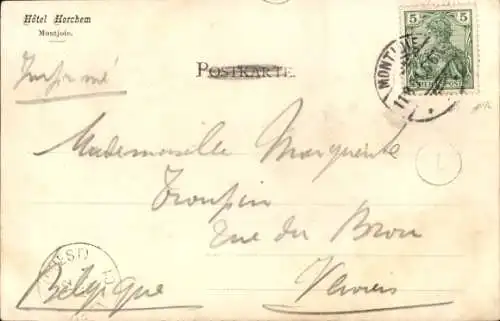 Hôtel Horchem
Montjoie.
5 5
MONTJOIE
POSTKARTE
Imprimé
Mademoiselle Marguerite
Troupin
rue du Brou
Verviers
Belgique